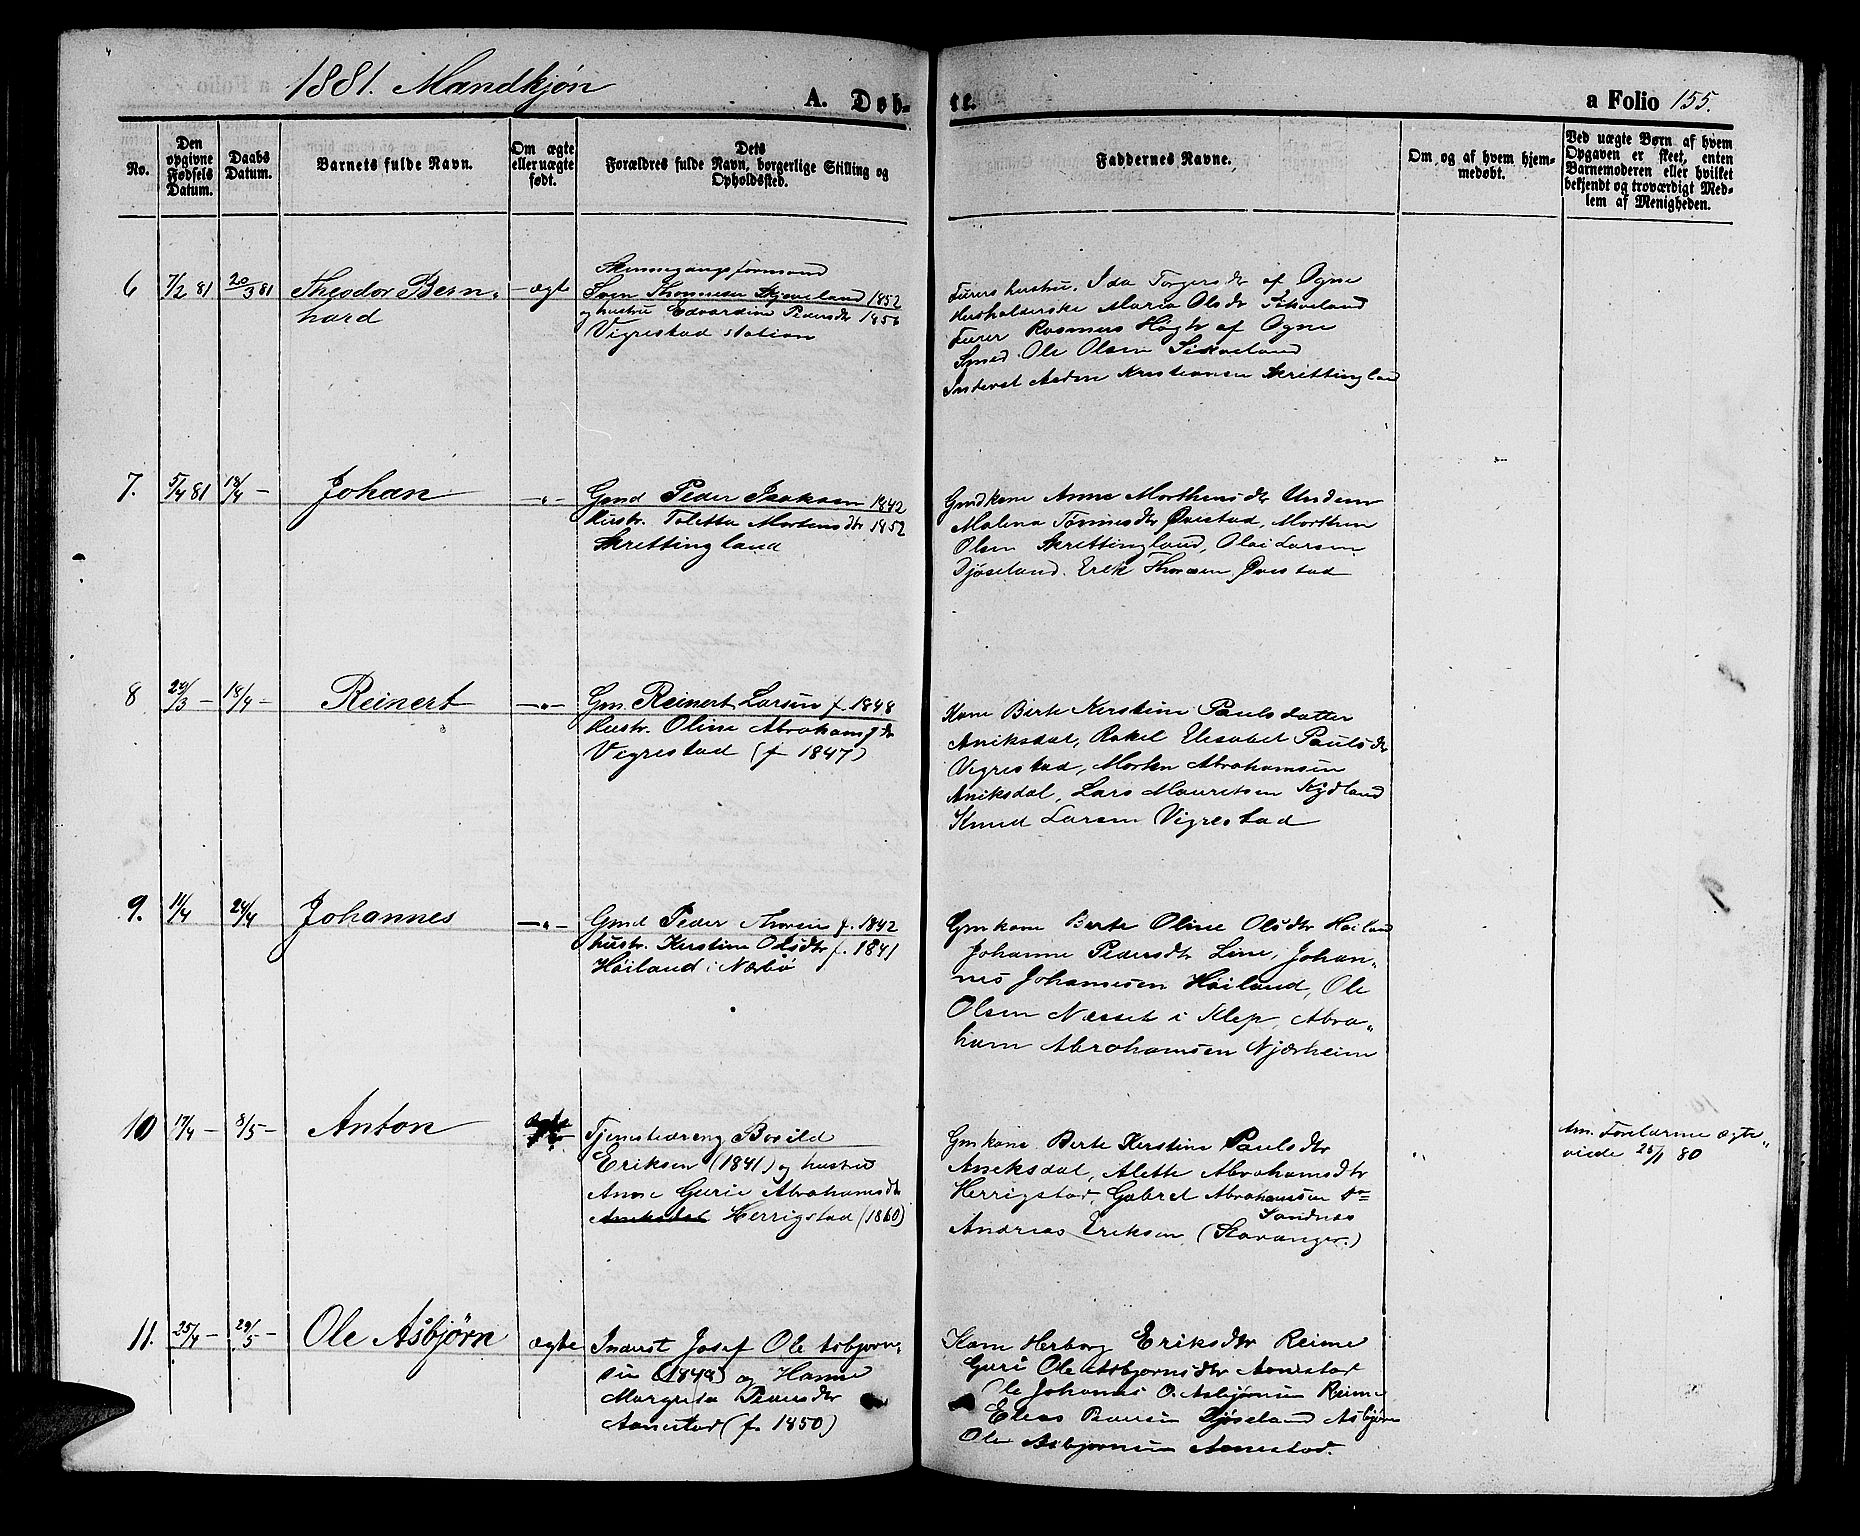 1881. Mandkjøn
A. Døb-
te.
a Folio 155.
No.
Den opgivne Fødsels Datum.
Daabs Datum.
Barnets fulde Navn.
Om ægte eller uægte født.
Dets Forældres fulde Navn, borgerlige Stilling og Opholdssted.
Faddernes Navne.
Om og af hvem hjemmedøbt.
Ved uægte Børn af hvem Opgaven er skeet, enten Barnemoderen eller hvilket bekjendt og troværdigt Medlem af Menigheden.
6 7/2 81 20/3 81 Theodor Bern-
hard
ægt
Skinnegangsformand
Sven Thonnesen Skjæveland 1852
og hustru Edvardine Pedersdtr 1856
Vigrestad station
hustru. Ida Torgersdtr af Ogne
Husholderske Maria Olsdr
Rasmus af Ogne
Smed Ole Olsen
Inderst Kristiansen Skrettingland
7. 5/4 81 18/4 - Johan -"-
Gmd Peder Isaksen 1842
Hustr. Toletta Mortensdtr 1852
Skrettingland
Gmdkone Anne Morthensdtr Undem
Malena Tønnesdtr Øvestad, Morthen
Olsen Skrettingland, Olai Larsen
Djøseland. Erik Øvestad
8 29/3 - 18/4 - Reinert -"-
Gm. Reinert Larsen f. 1848
Hustr. Oline Abrahamsdtr
Vigrestad (f 1847)
Kone Birte Kirstine Paulsdatter
Aniksdal, Rakel Elisabet Paulsdtr
Vigrestad, Morten Abrahamsen
Aniksdal, Lars Mauritsen Kydland
Knud Larsen Vigrestad
9. 11/4 24/4 Johannes -"-
Gmd Peder f. 1842
hustr. Kirstine Olsdtr f. 1841
Høiland i Nærbø
Gmkone Berte Oline Olsdtr Høiland
Johanne Pedersdtr Line, Johan-
nes Johannesen Høiland, Ole
Olsen Næsset i Klep, Abra-
ham Abrahamsen Njærheim
10 17/4 - 8/5 - Anton ægte
Tjenestedreng Bosild
Eriksen (1841) og hustru
Anne Gurie Abrahamsdtr
Aniksdal Herrigstad (1860)
Gmkone Berte Kirstine Paulsdtr
Aniksdal, Alette Abrahamsdtr
Herrigstad, Gabrel Abrahamsen do
Sandnes
Andreas Eriksen (Stavanger.)
Am. Forældrene ægte-
viede 25/1 80
11. 25/4 - 29/5 - Ole Asbjørn ægte
Inderst Josef Ole Asbjørn-
sen (1848) og Hanne
Margreta
Aanestad (f. 1850)
Kone Herborg Eriksdtr Reime
Guri Ole Asbjørnsdtr Aanestad
Ole Johannes O. Asbjørnsen Reime
Elias Djøseland Asbjørn
Ole Asbjørnsen Aanestad.